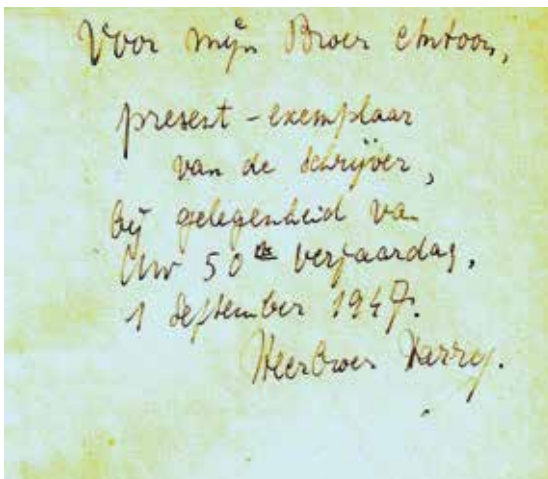 Voor mijn Broer Antoon,
present-exemplaar
van de schrijver,
bij gelegenheid van
Uw 50ste verjaardag,
1 September 1947.
Heerbroer Harry.